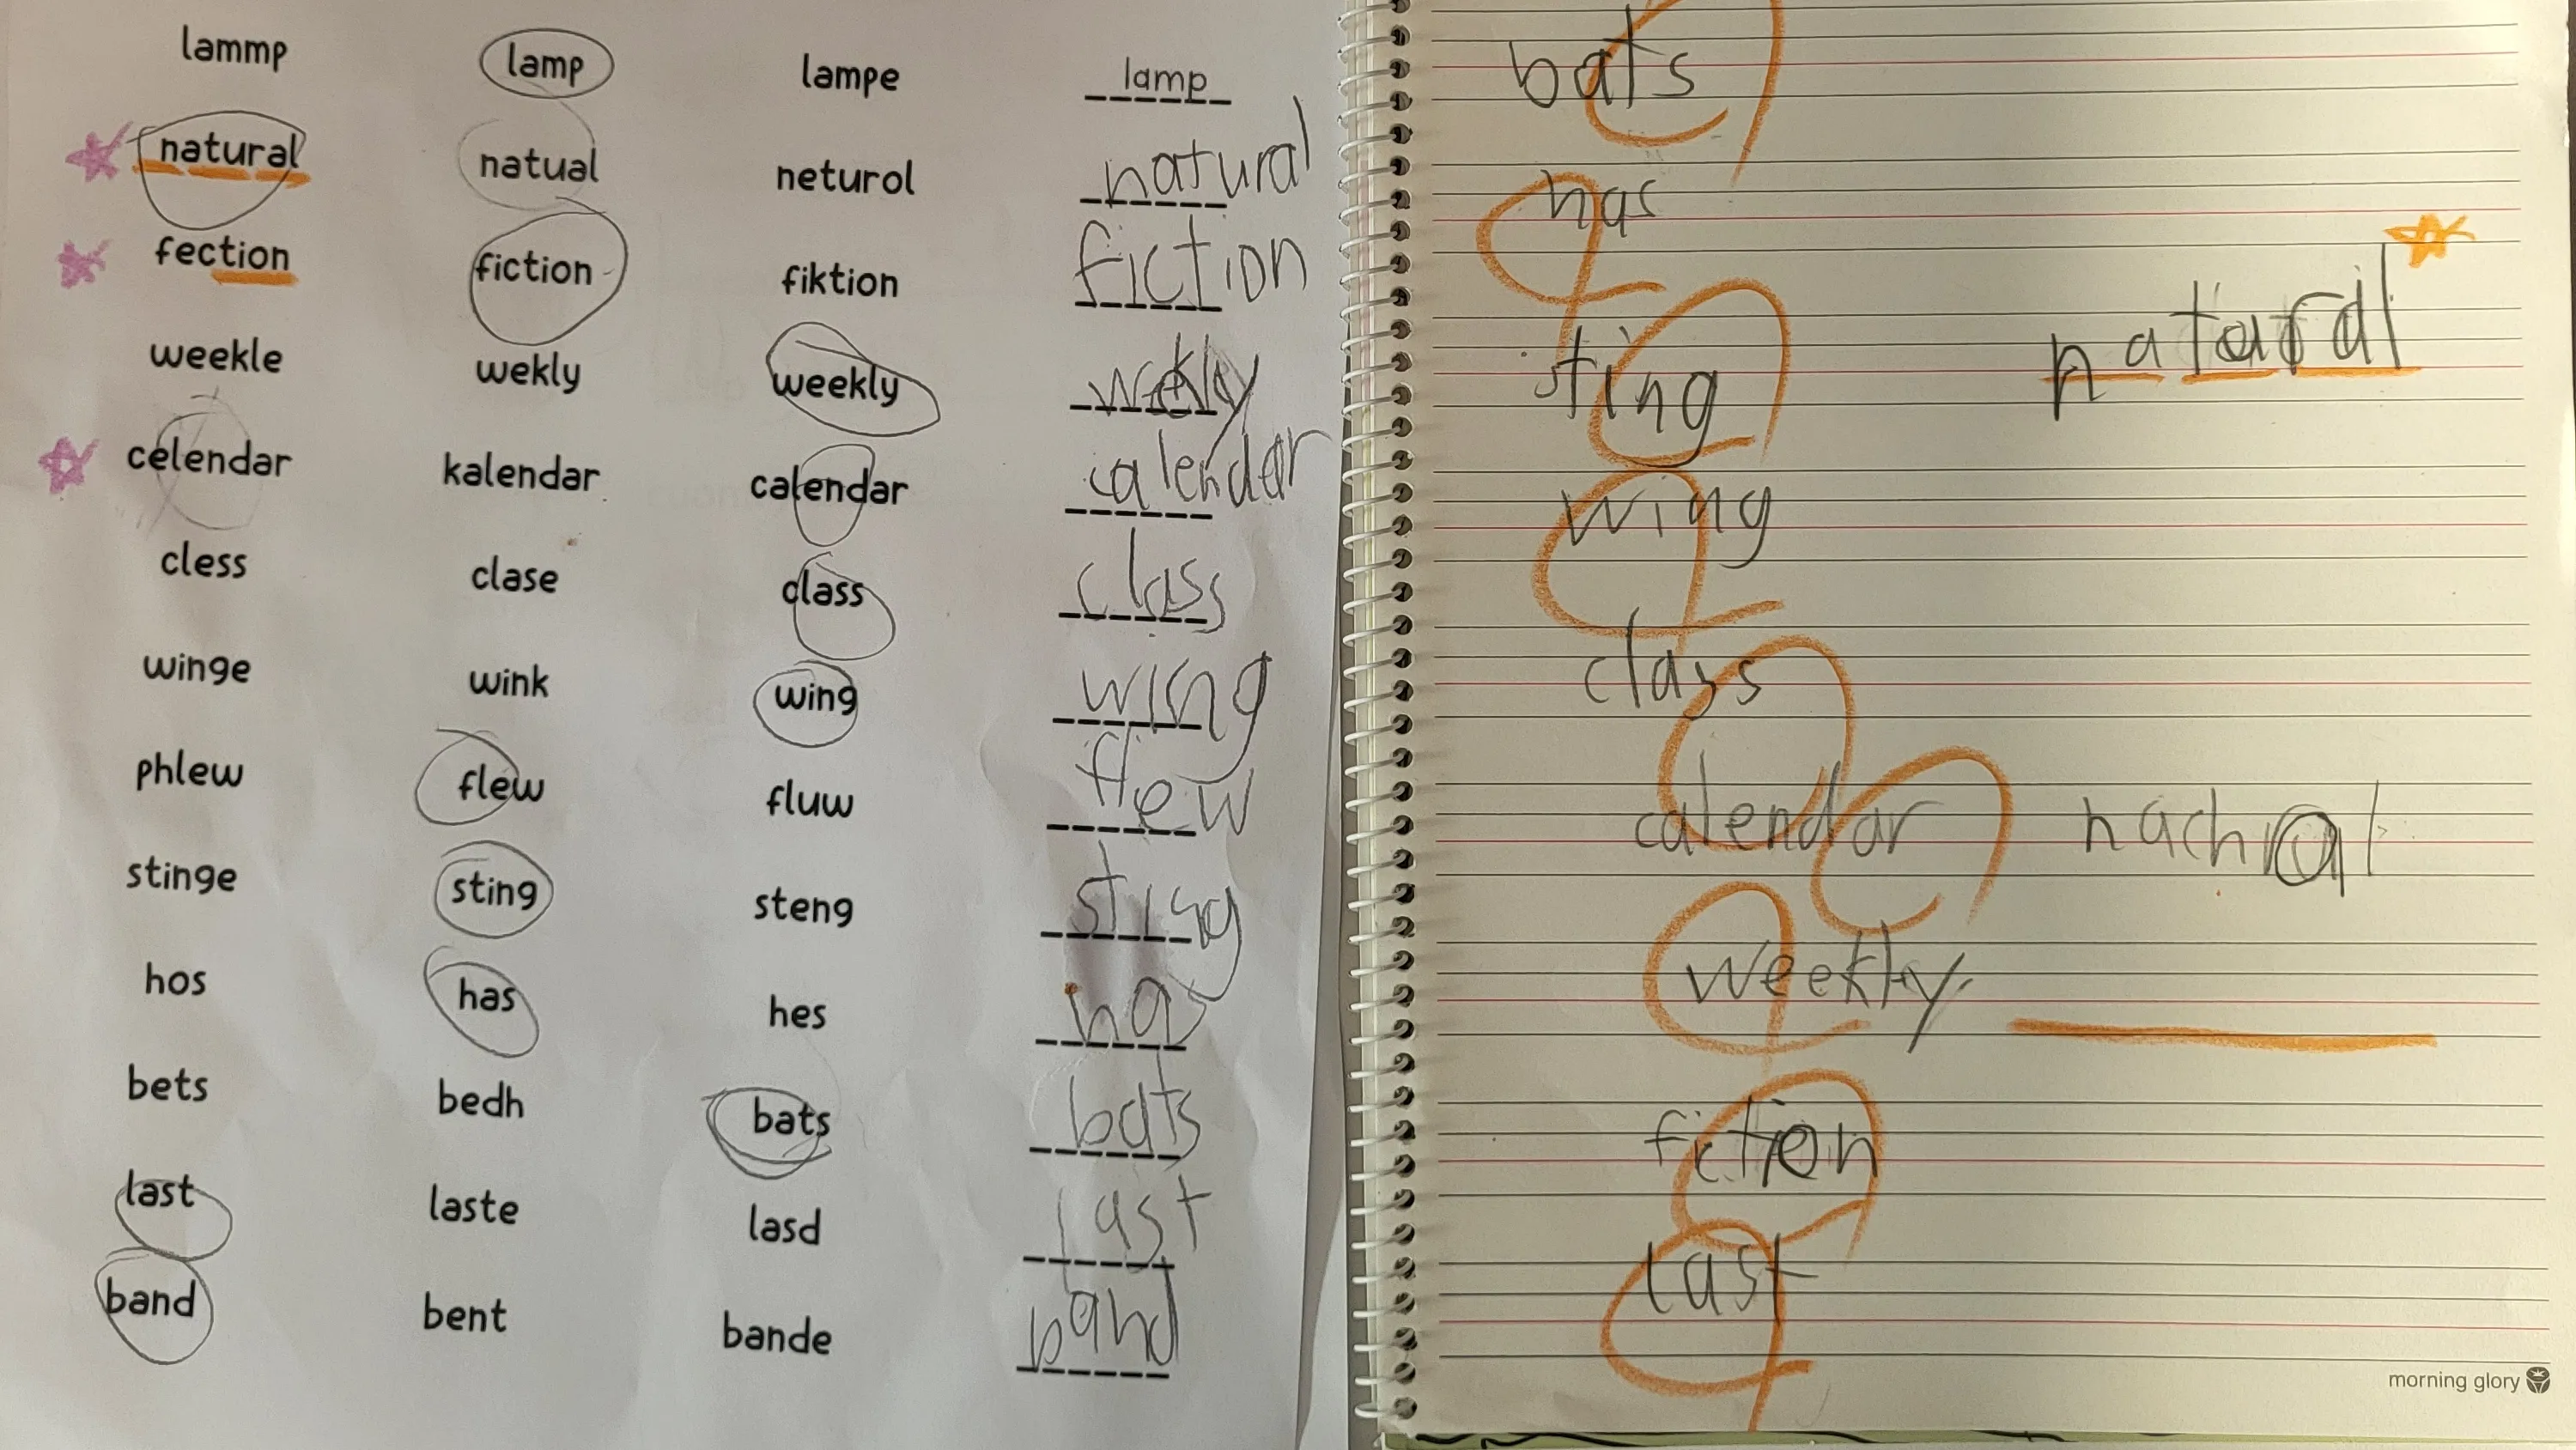 lammp lamp lampe lamp
natural natual neturol natural
fection fiction fiktion fiction
weekle wekly weekly wekly
celendar kalendar calendar calendar
cless clase class class
winge wink wing wing
phlew flew fluw flew
stinge sting steng sting
hos has hes has
bets bedh bats bats
last laste lasd last
band bent bande band
bats
has
natural
sting
wing
class
calendar nachral
weekly
fiction
last
morning glory